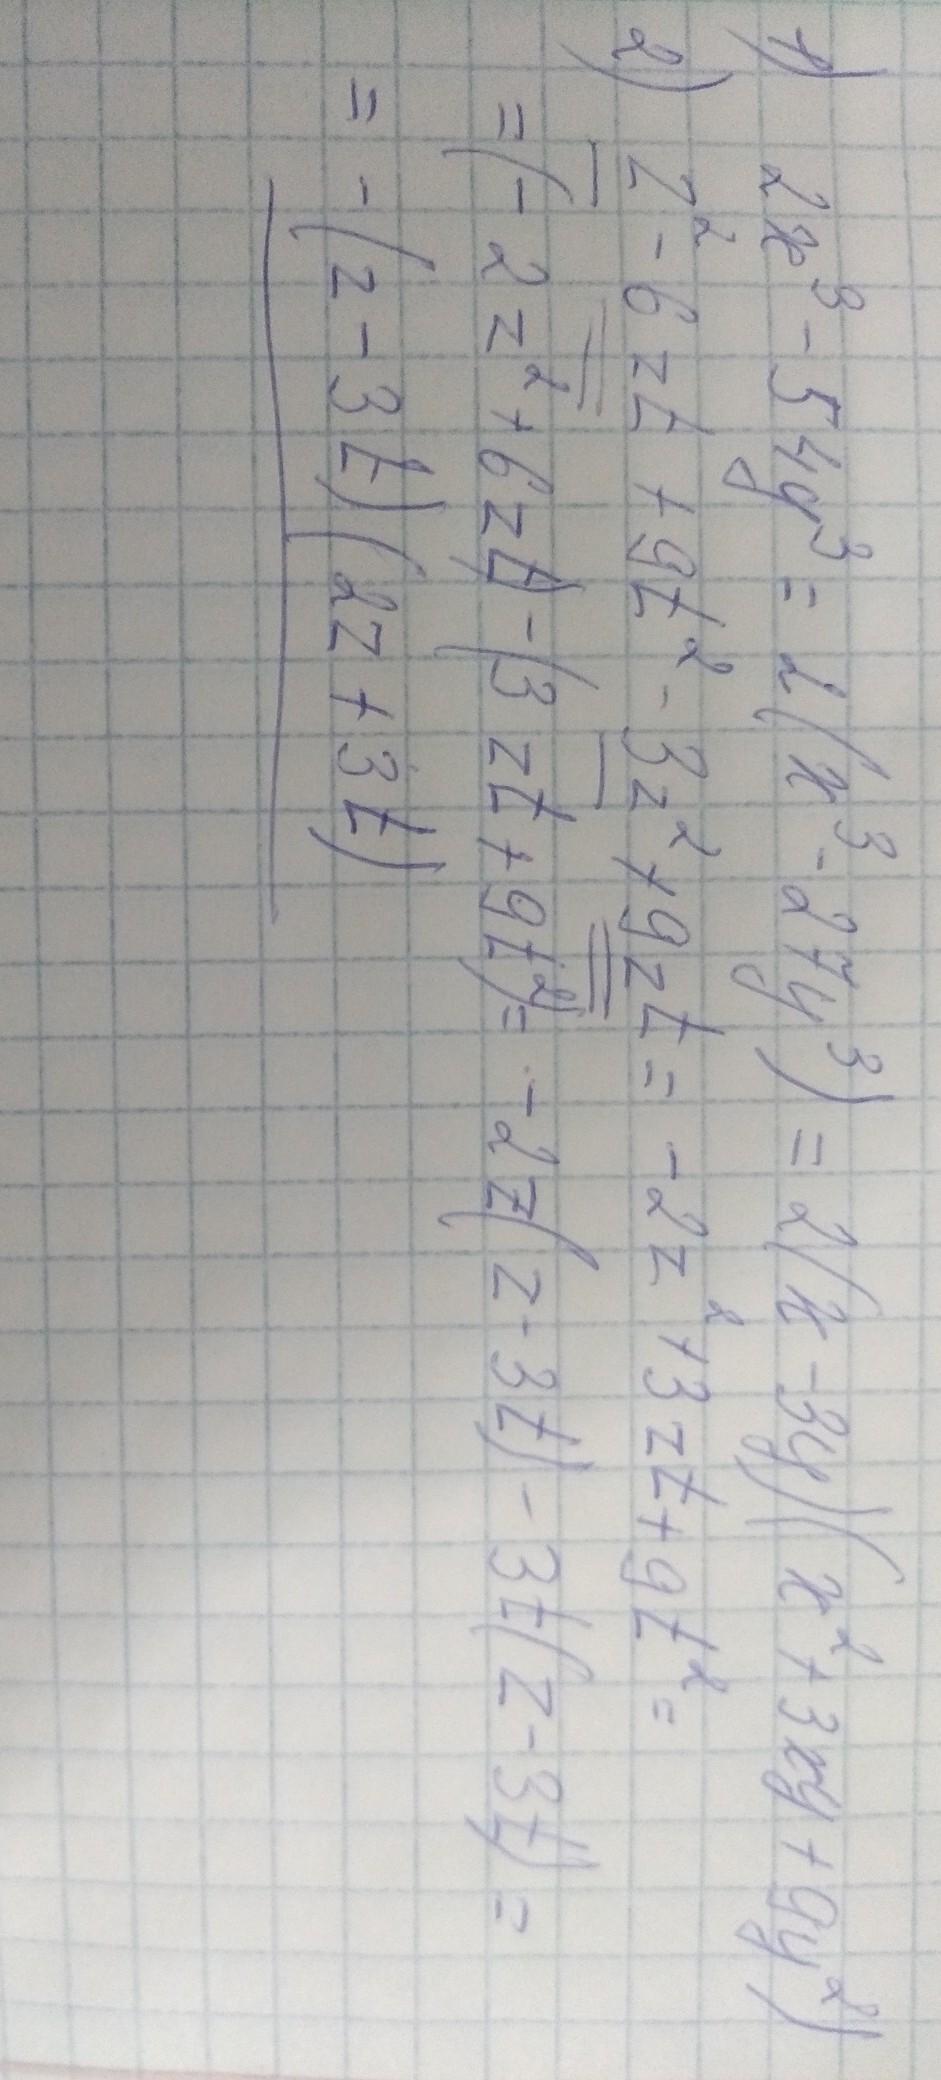 1) 2x³ - 54y³ = 2(x³ - 27y³) = 2(x - 3y)(x² + 3xy + 9y²)
2) z² - 6zt + 9t² - 3z² + 9zt = -2z² + 3zt + 9t² =
= (-2z² + 6zt) - (3zt + 9t²) = -2z(z - 3t) - 3t(z - 3t) =
= -(z - 3t)(2z + 3t)